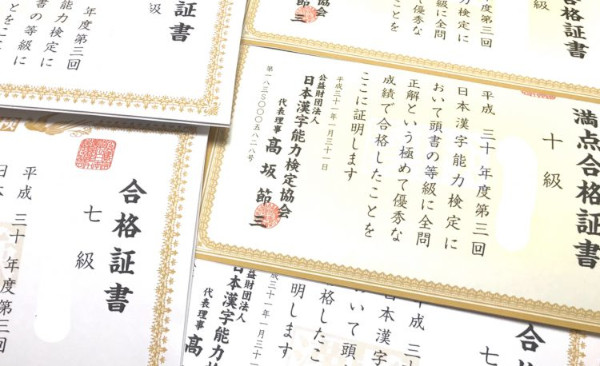 格証書
級
度第三回
力検定に
の等級に
とをここに
合格証書
年度第三回
力検定に
満点合格証書
十級
平成 三十 年度第三回
日本漢字能力検定に
おいて頭書の等級に全問
正解という極めて優秀な
成績で合格したことを
ここに証明します
平成三十一年一月三十一日
公益財団法人
日本漢字能力検定協会
代表理事 髙坂節三
合格証書
七級
平成 三十 年度第三
日本
合格証書
七
平成 三十
日本漢字
おいて頭
格したこ
明します
三十一年一月三十一
公益財団法人
日本漢字能力検定
代表理事 髙